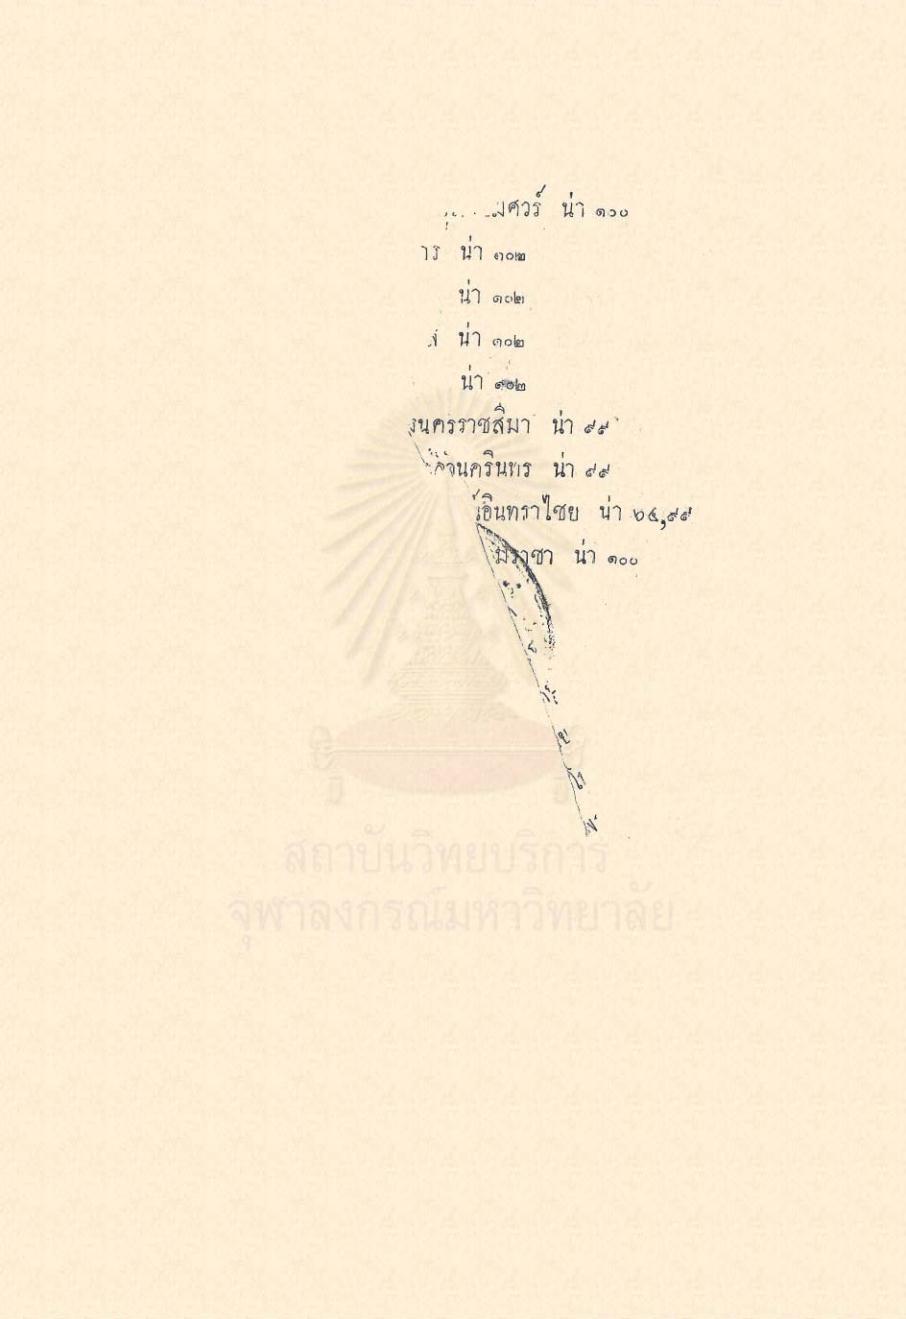 มศวร์ น่า ๑๐๐
าร น่า ๑๐๒
น่า ๑๐๒
น่า ๑๐๒
น่า ๑๐๒
งนครราชสิมา น่า ๙๙
จนครินทร น่า ๙๙
อินทราไชย น่า ๖๔,๙๙
มราชา น่า ๑๐๐
สถาบันวิทยบริการ
จุฬาลงกรณ์มหาวิทยาลัย